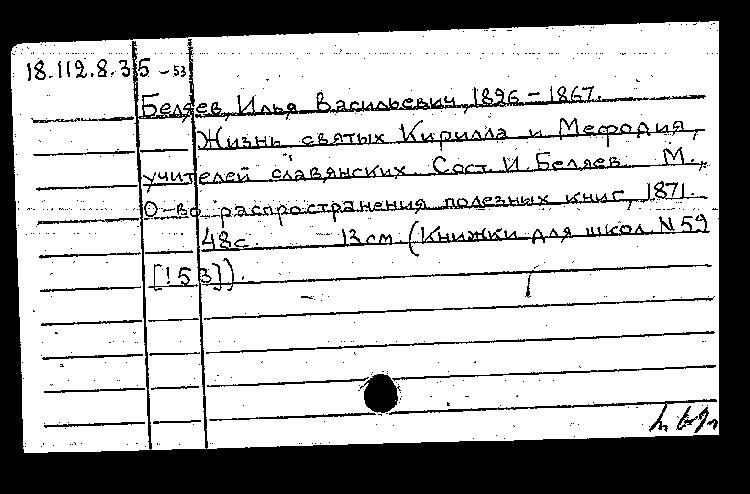 18.112.8.35 - 53
Беляев, Илья Васильевич, 1826 - 1867.
Жизнь святых Кирилла и Мефодия,
учителей славянских. Сост. И. Беляев. М.,
О-во распространения полезных книг, 1871.
48 с. 13 см. (Книжки для школ. N 59
[!53]).